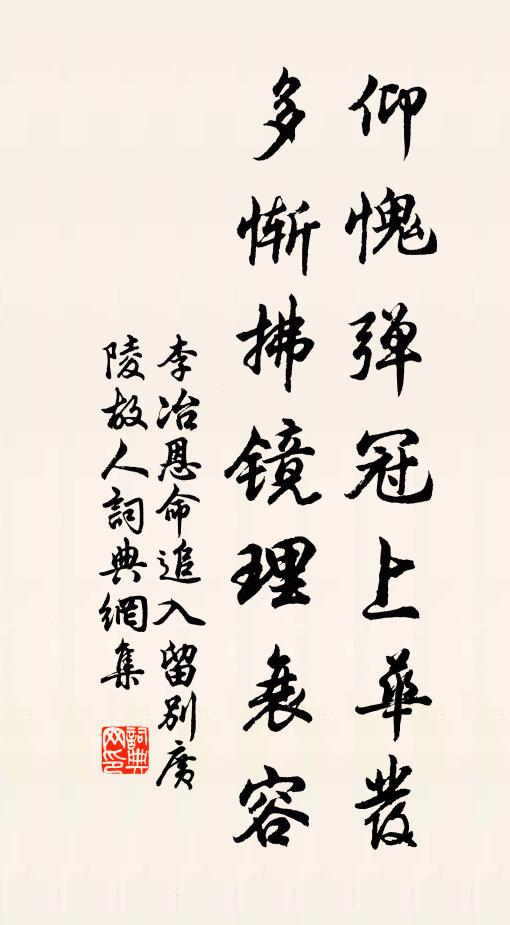 仰愧弹冠上華发
多慚拂镜理衰容
李冶恩命追入留别廣
陵故人詞典網集
詞典网印